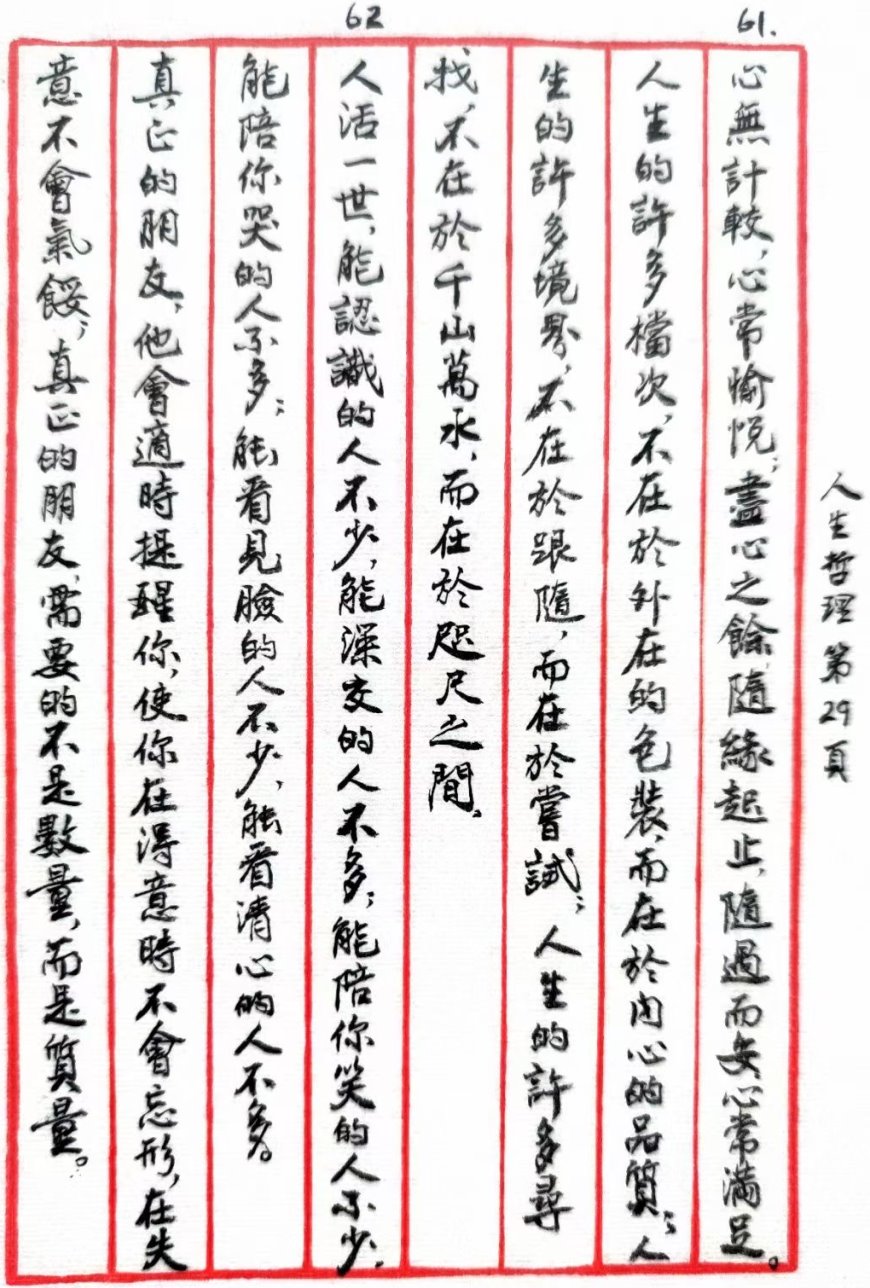 人生哲理第29頁
61.
心無計較,心常愉悅;盡心之餘,隨緣起止,隨遇而安,心常滿足。
人生的許多檔次,不在於外在的包裝,而在於內心的品質;人
生的許多境界,不在於跟隨,而在於嘗試;人生的許多尋
找,不在於千山萬水,而在於咫尺之間。
62
人活一世,能認識的人不少,能深交的人不多;能陪你笑的人不少,
能陪你哭的人不多;能看見臉的人不少,能看清心的人不多。
真正的朋友,他會適時提醒你,使你在得意時不會忘形,在失
意不會氣餒;真正的朋友,需要的不是數量,而是質量。